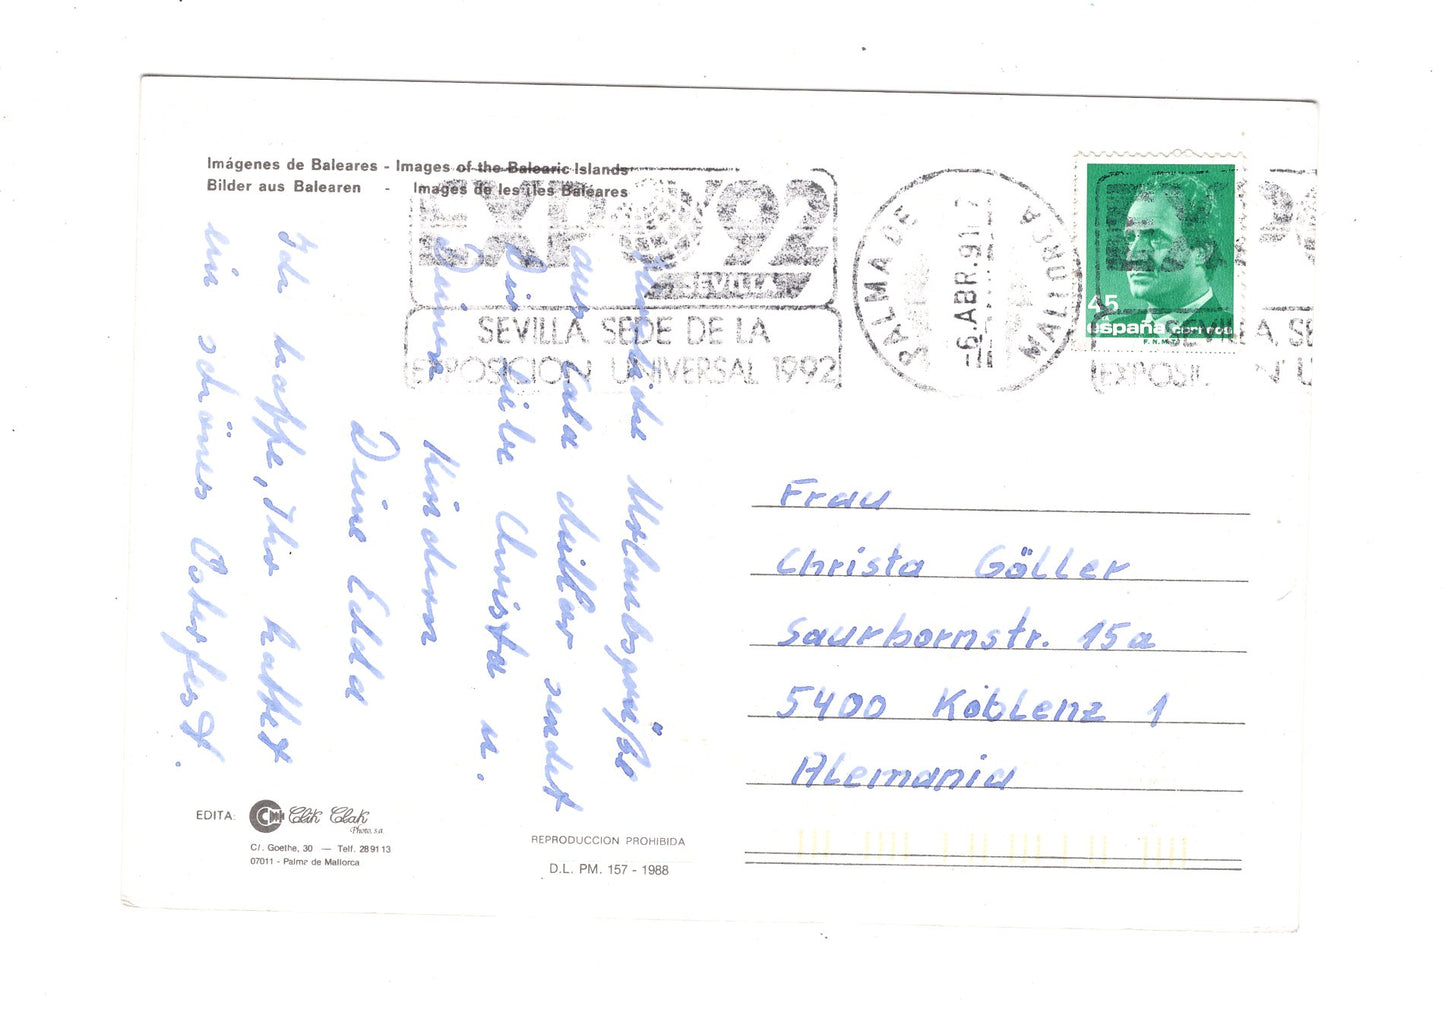 Imágenes de Baleares - Images of the Balearic Islands
Bilder aus Balearen - Images de les îles Baléares
EXPO'92
SEVILLA
SEVILLA SEDE DE LA
EXPOSICION UNIVERSAL 1992
PALMA DE MALLORCA
-6.ABR.91
45
españa correos
F.N.M.T.
Herzliche Urlaubsgrüße
aus Cala Millor sendet
Dir liebe Christa u.
Deinen Kindern
Deine Edda
Ich hoffe, Ihr hattet
ein schönes Osterfest.
Frau
Christa Göller
Saurbornstr. 15a
5400 Koblenz 1
Alemania
EDITA: Clik Clak
Photo, s.a.
C/. Goethe, 30 — Telf. 28 91 13
07011 - Palma de Mallorca
REPRODUCCION PROHIBIDA
D.L. PM. 157 - 1988